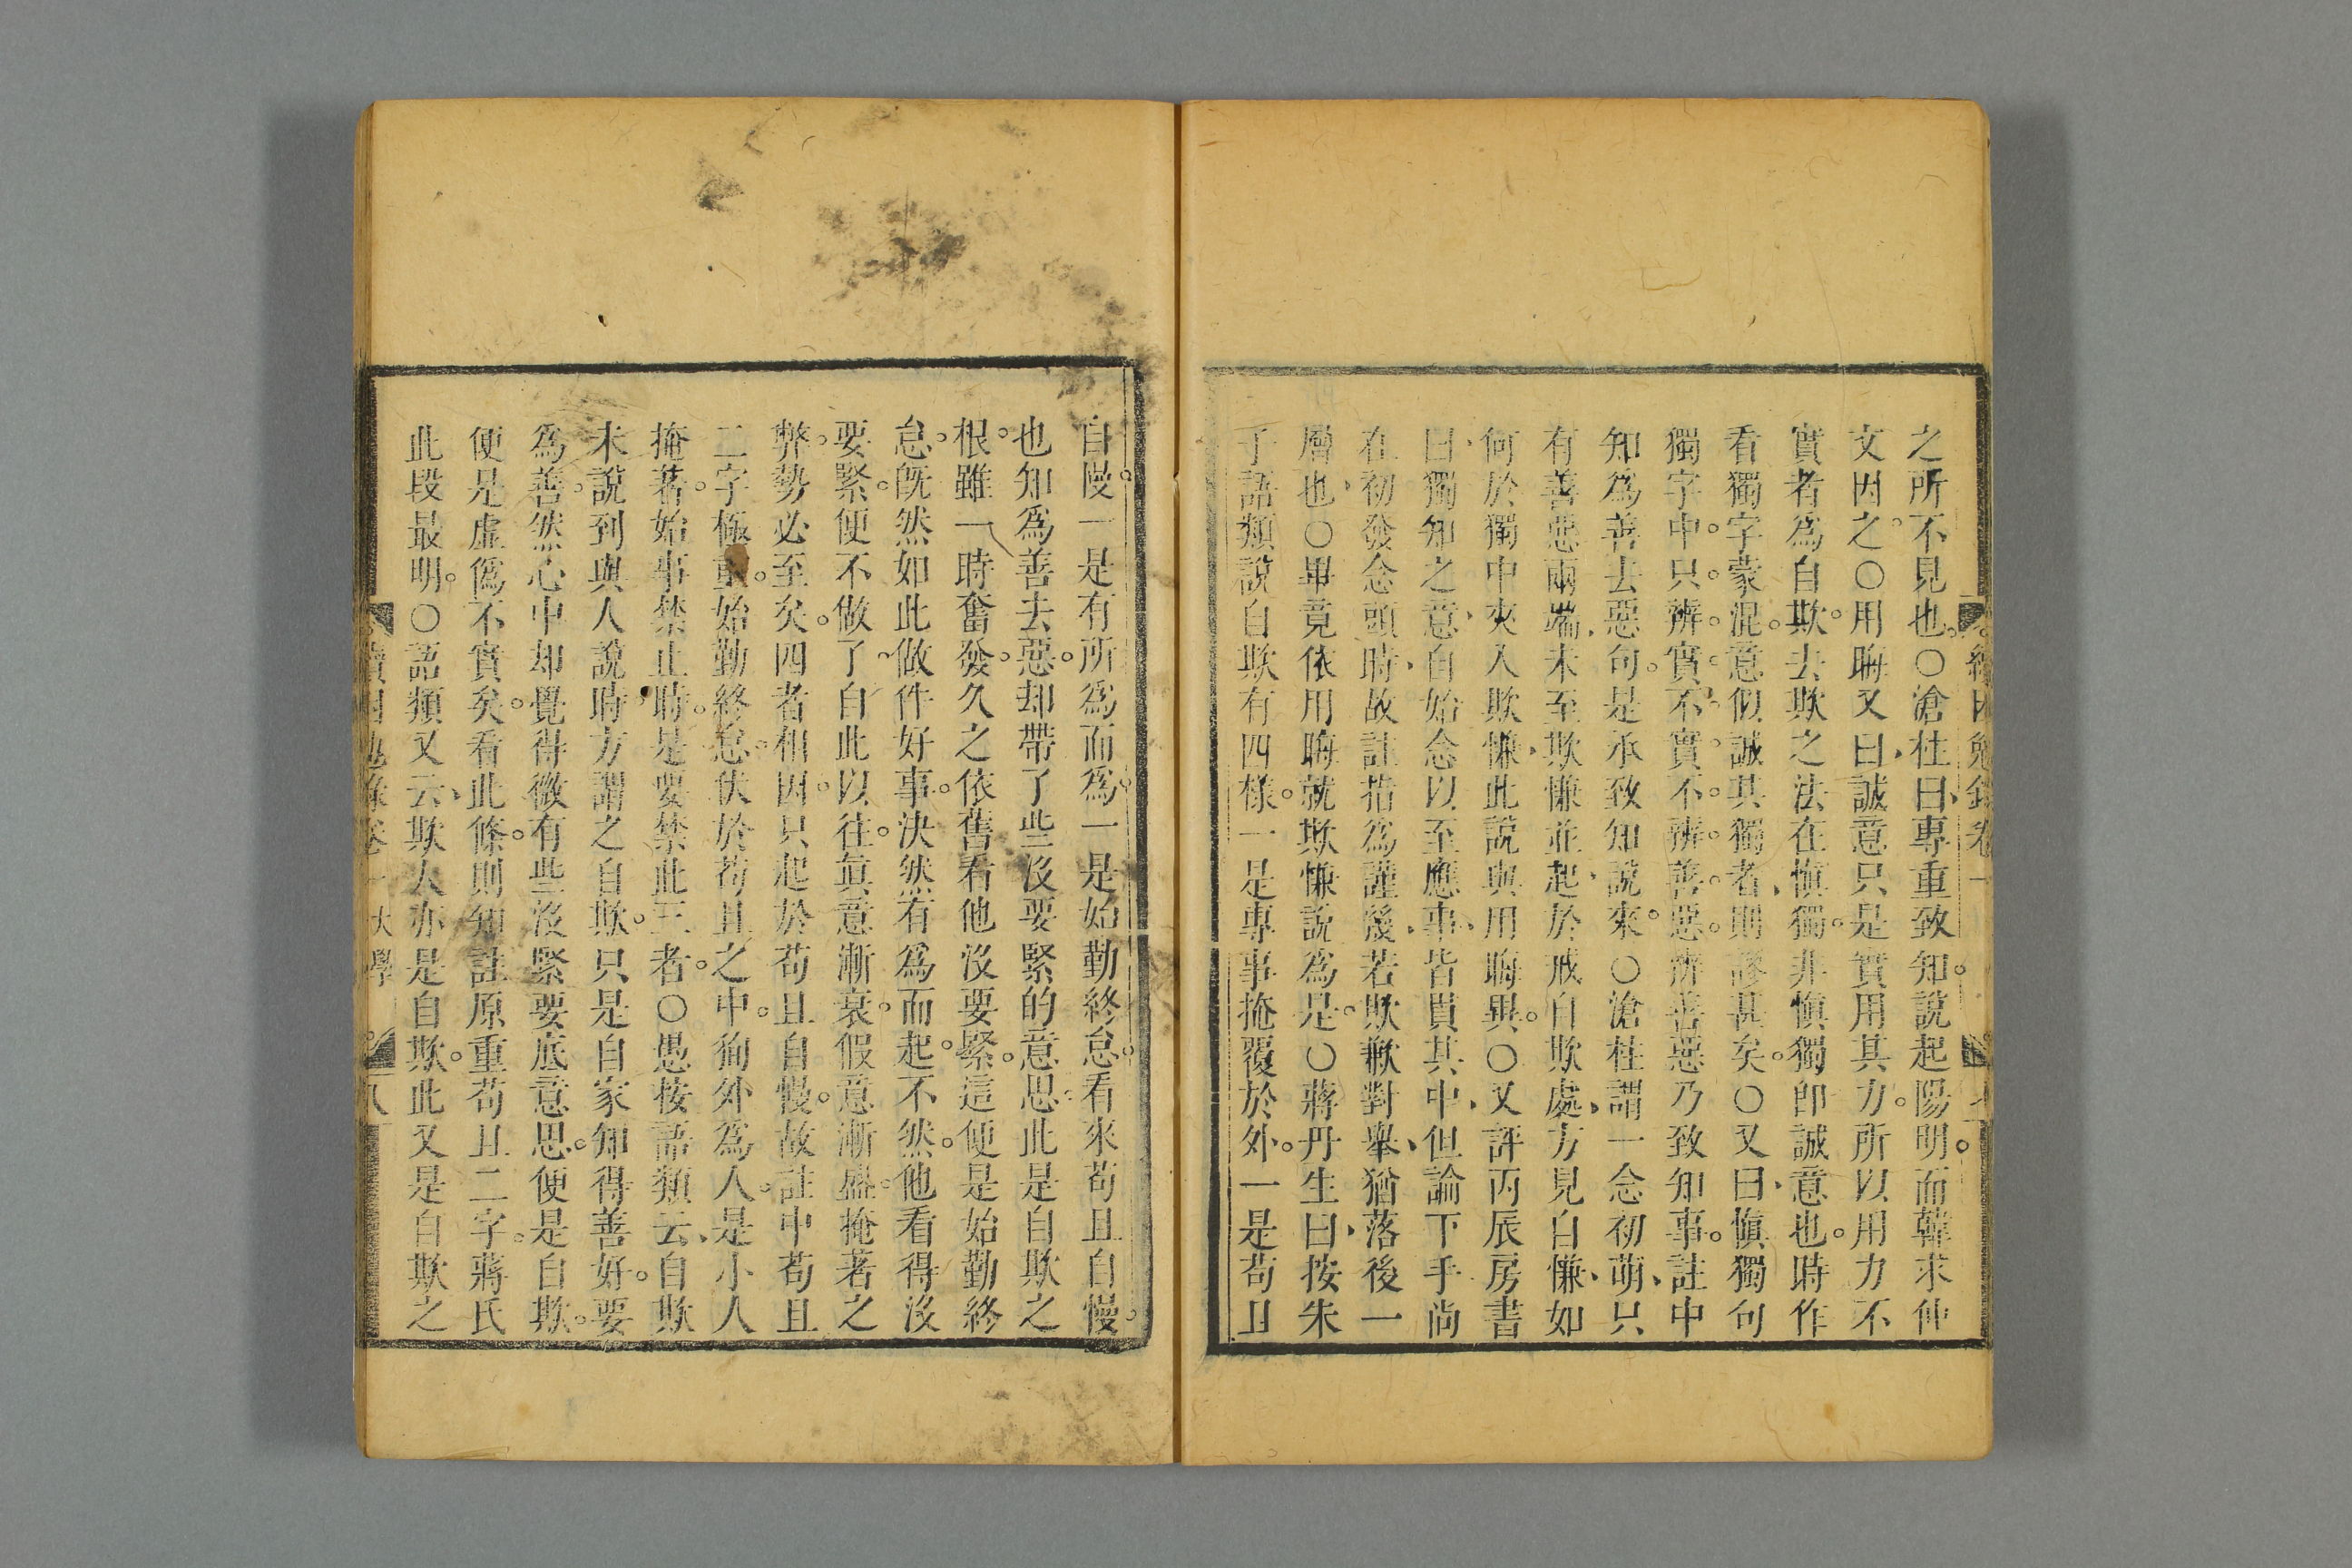 續困勉錄卷一
之所不見也○滄柱曰專重致知說起陽明而韓求仲
文因之○用晦又曰誠意只是實用其力所以用力不
實者爲自欺去欺之法在愼獨非愼獨卽誠意也時作
看獨字蒙混意似誠其獨者則謬甚矣○又曰愼獨句
獨字中只辨實不實不辨善惡辨善惡乃致知事註中
知爲善去惡句是承致知說來○滄柱謂一念初萌只
有善惡兩端未至欺慊並起於戒自欺處方見自慊如
何於獨中夾入欺慊此說與用晦異○又評丙辰房書
曰獨知之意自始念以至應事皆貫其中但論下手尚
在初發念頭時故註指爲謹幾若欺慊對舉猶落後一
層也○畢竟依用晦就欺慊說爲是○蔣丹生曰按朱
子語類說自欺有四樣一是專事掩覆於外一是苟且
自慢一是有所爲而爲一是始勤終怠看來苟且自慢
也知爲善去惡却帶了些沒要緊的意思此是自欺之
根雖一時奮發久之依舊看他沒要緊這便是始勤終
怠旣然如此做件好事決然有爲而起不然他看得沒
要緊便不做了自此以往眞意漸衰假意漸盛掩著之
弊勢必至矣四者相因只起於苟且自慢故註中苟且
二字極重始勤終怠伏於苟且之中狥外爲人是小人
掩著始事禁止時是要禁此三者○愚按語類云自欺
未說到與人說時方謂之自欺只是自家知得善好要
爲善然心中却覺得微有些沒緊要底意思便是自欺
便是虛僞不實矣看此條則知註原重苟且二字蔣氏
此段最明○語類又云欺人亦是自欺此又是自欺之
續困勉錄卷一 大學 八